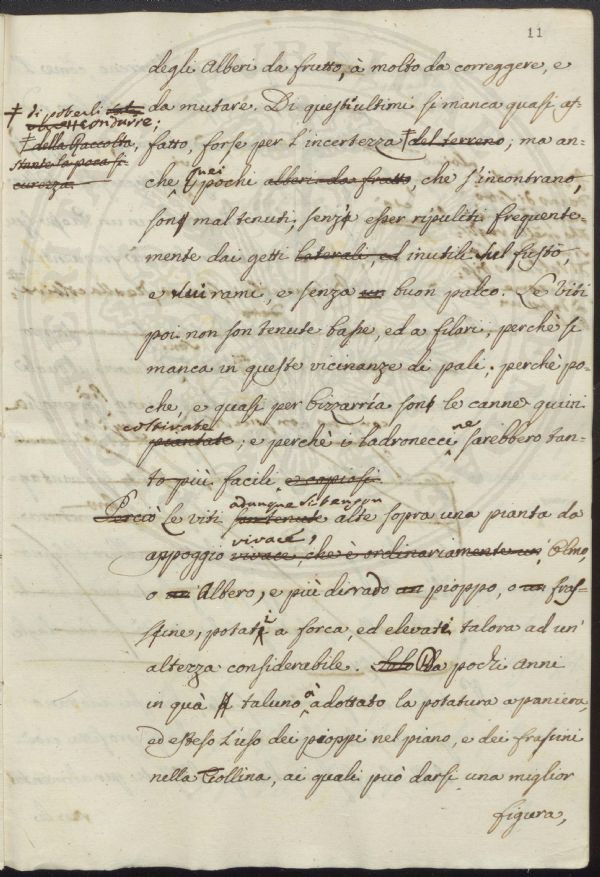 11
degli Alberi da frutto, à molto da correggere, e
‡ di poterli
condurre;
‡ della Raccolta,
stante la poca si-
curezza.
da mutare. Di questi ultimi si manca quasi af-
fatto, forse per l'incertezza ‡ del terreno; ma an-
che quei pochi alberi da frutto, che s'incontrano,
son mal tenuti, senz' esser ripuliti frequente-
mente dai getti laterali, ed inutili sul fusto,
e sui rami, e senza un buon palco. Le Viti
poi non son tenute basse, ed a filari, perchè si
manca in queste vicinanze di pali; perchè po-
che, e quasi per bizzarría son le canne quivi
coltivate
piantate, e perchè i ladronecci ne sarebbero tan-
to più facili e copiosi.
adunque si tengon
Perciò le viti son tenute alte sopra una pianta da
vivace,
appoggio vivace, che è ordinariamente un Olmo,
o un Albero, e più di rado un pioppo, o un fras-
sine, potati a forca, ed elevati talora ad un'
altezza considerabile. Solo Da pochi anni
in quà taluno à adottato la potatura a paniera,
ed esteso l'uso dei pioppi nel piano, e dei frassini
nella Collina, ai quali può darsi una miglior
figura,